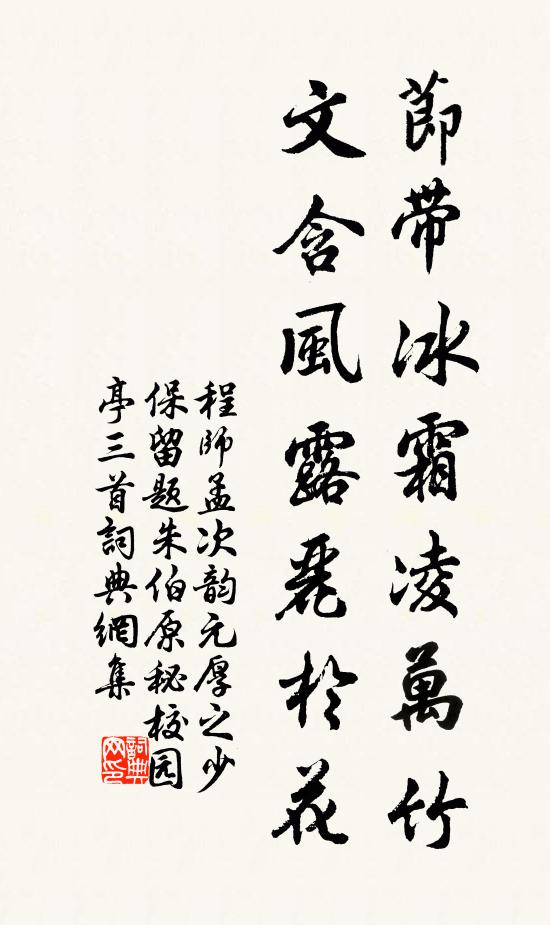 節帶冰霜凌萬竹
文含風露麗於花
程師孟次韵元厚之少
保留题朱伯原秘校园
亭三首詞典網集
詞典网印